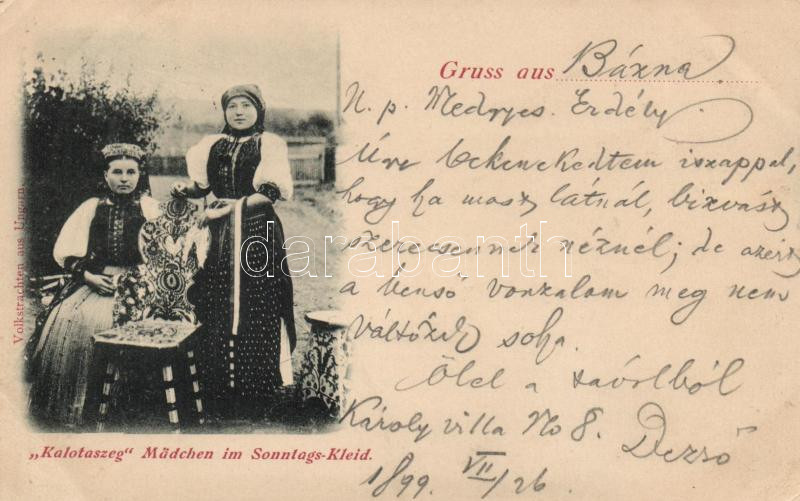 Gruss aus Bázna
N. p. Medgyes. Erdély
Úgy bekenekedtem iszappal,
hogy ha most látnál, bizvást
szerecsennek néznél; de azért
a benső vonzalom meg nem
változik soha.
Ölel a távolból
Károly villa No 8. Dezső
1899 VII/26
Volkstrachten aus Ungarn.
„Kalotaszeg“ Mädchen im Sonntags-Kleid.
darabanth